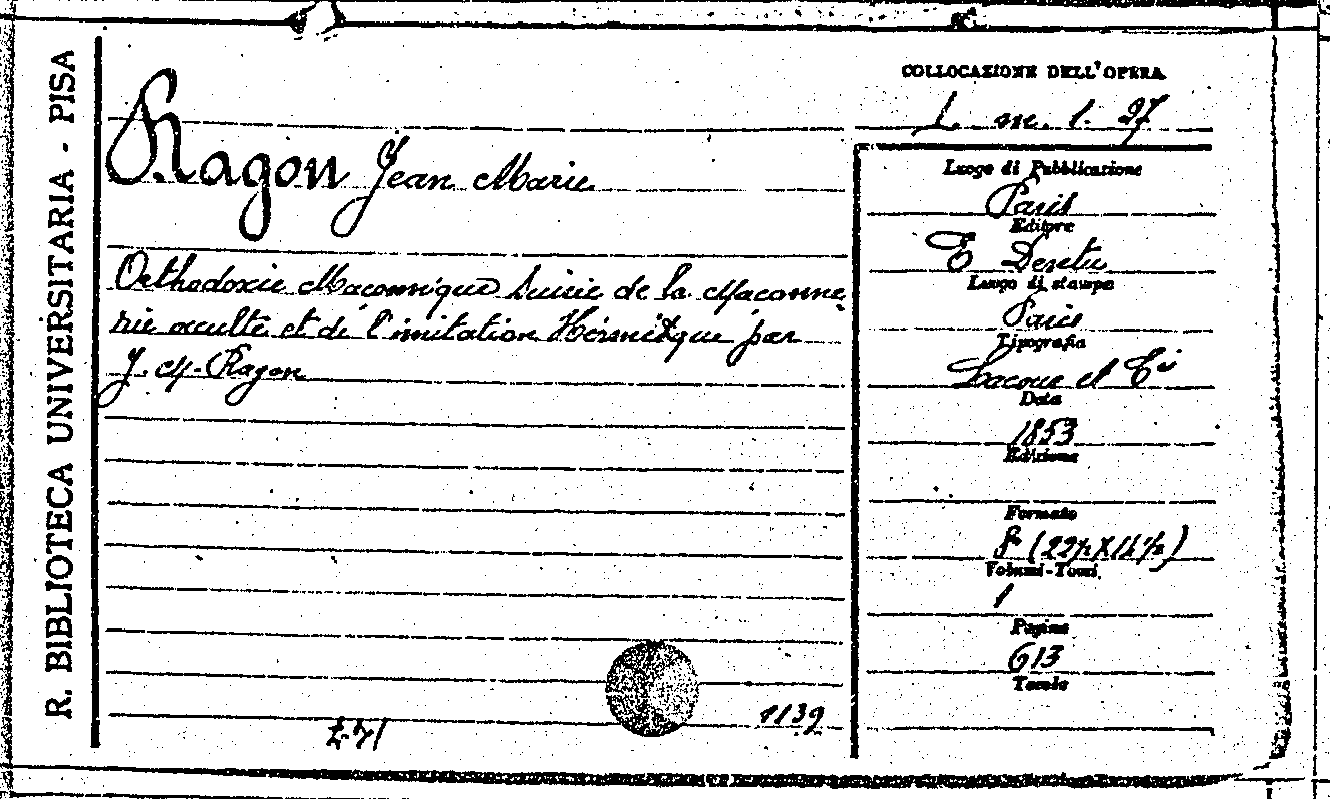 R. BIBLIOTECA UNIVERSITARIA - PISA
Ragon Jean Marie
Orthodoxie Maconnique Suivie de la Maconne
rie occulte et de l'imitation Hérmitque par
J. M. Ragon
1139
COLLOCAZIONE DELL'OPERA
L m. 1. 27
Luogo di Pubblicazione
Paris
Editore
E Dentu
Luogo di stampa
Paris
Tipografia
Lacour et C
Data
1853
Edizione
Formato
8º (22½ X 14½)
Volumi-Tomi
1
Pagine
613
Tavole